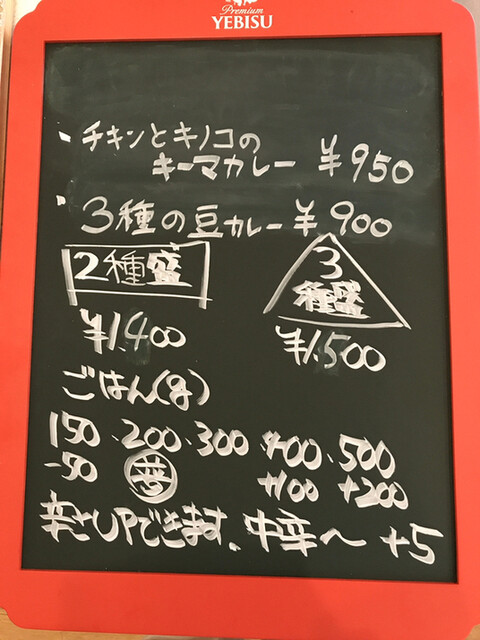 Premium
YEBISU
・チキンとキノコの
キーマカレー ¥950
・3種の豆カレー ¥900
2種盛
¥1,400
3
種盛
¥1,500
ごはん(g)
150・200・300・400・500
-50 +100 +200
辛さUPできます、中辛〜+5